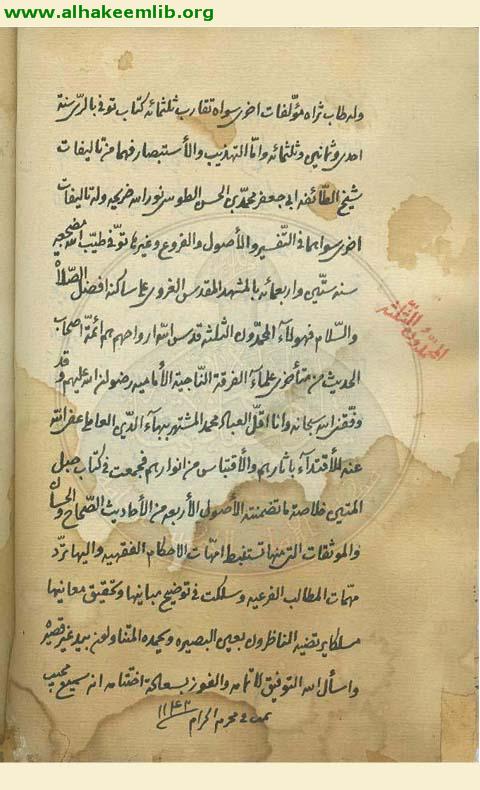 www.alhakeemlib.org
وله طاب ثراه مؤلفات اخرى سواه تقارب ثلثمائه كتاب توفى بالرى سنة
احدى وثمانين وثلثمائه واما التهذيب والأستبصار فهما من تاليفات
شيخ الطائفه ابى جعفر محمد بن الحسن الطوسى نور الله ضريحه وله تاليفات
اخرى سواهما فى التفسير والأصول والفروع وغيرها توفى طيب الله مضجعه
سنه ستين واربعمائه بالمشهد المقدس الغروى على ساكنه افضل الصلاة
والسلام فهولاء المحمدون الثلثه قدس الله ارواحهم هم أئمة اصحاب
الحديث من متأخرى علماء الفرقة الناجية الأماميه رضوان الله عليهم وقد
وفقنى الله سبحانه وانا اقل العباد محمد المشتهر ببهاء الدين العاملى عفى الله
عنه للأقتداء باثارهم والأقتباس من انوارهم فجمعت فى كتاب حبل
المتين خلاصة ما تضمنته الأصول الأربعه من الأحاديث الصحاح والحسان
والموثقات التى منها تستنبط امهات الاحكام الفقهيه واليها ترد
مهمات المطالب الفرعيه وسلكت فى توضيح مبانيها وتحقيق معانيها
مسلكا يرتضيه الناظرون بعين البصيره ويحمده المتناولون بيد غير قصيره
واسأل الله التوفيق لاتمامه والفوز بسعادة اختتامه انه سميع مجيب
تمت فى محرم الحرام ١١٤٣
المحمدون الثلثه